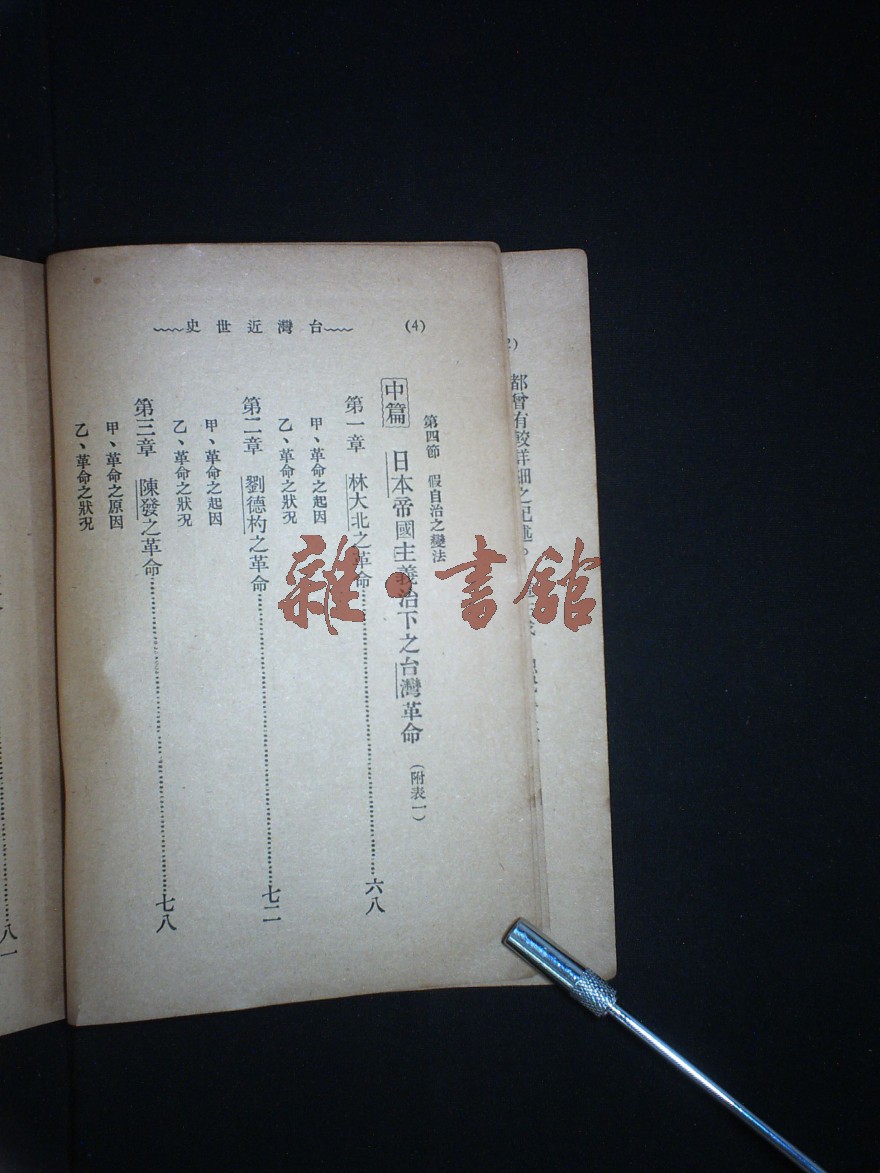 (4)
史世近灣台
第四節　假自治之變法
中篇　日本帝國主義治下之台灣革命（附表一）
第一章　林大北之革命……六八
甲、革命之起因
乙、革命之狀況
第二章　劉德杓之革命……七二
甲、革命之起因
乙、革命之狀況
第三章　陳發之革命……七八
甲、革命之原因
乙、革命之狀況
都曾有較詳細之記述。
八一
雜·書館